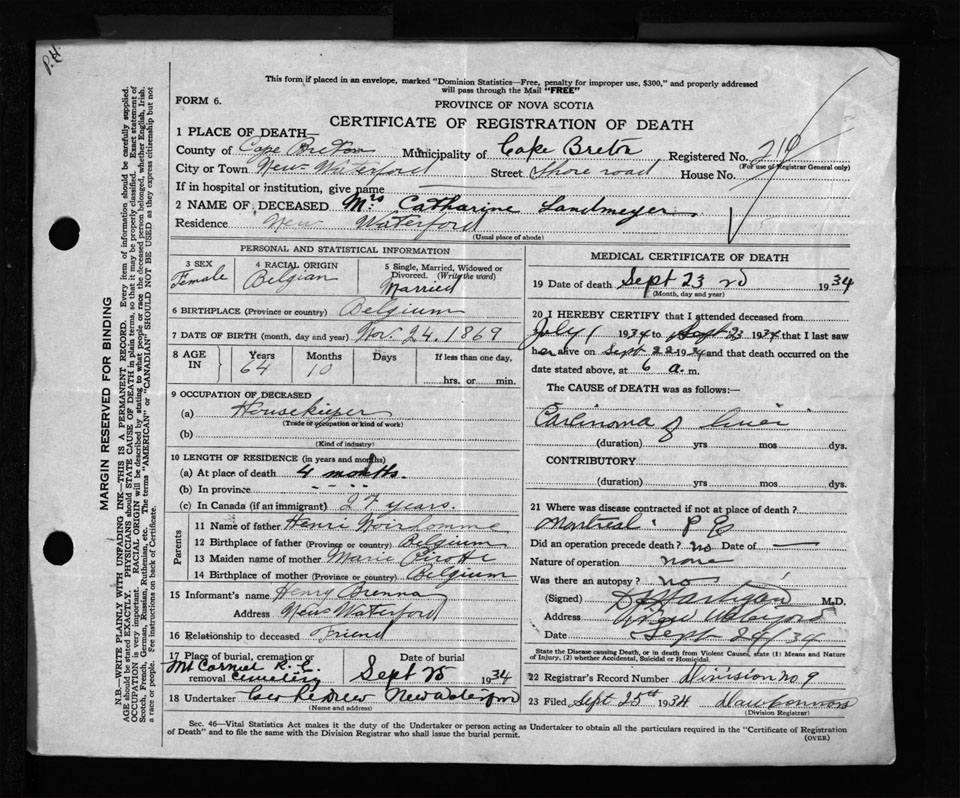 P.H.
This form if placed in an envelope, marked "Dominion Statistics—Free, penalty for improper use, $300," and properly addressed
will pass through the Mail "FREE"
FORM 6.
PROVINCE OF NOVA SCOTIA
CERTIFICATE OF REGISTRATION OF DEATH
1 PLACE OF DEATH—
County of Cape Breton Municipality of Cape Breton Registered No.
(For use of Registrar General only)
City or Town New Waterford Street Shore road House No.
If in hospital or institution, give name —
2 NAME OF DECEASED Mrs Catharine Landmeyer
Residence New Waterford
(Usual place of abode)
PERSONAL AND STATISTICAL INFORMATION
3 SEX Female
4 RACIAL ORIGIN Belgian
5 Single, Married, Widowed or Divorced. (Write the word) Married
6 BIRTHPLACE (Province or country) Belgium
7 DATE OF BIRTH (month, day and year) Nov. 24. 1869
8 AGE IN Years 64 Months 10 Days If less than one day, hrs. or min.
9 OCCUPATION OF DECEASED
(a) Housekieper
(Trade or occupation or kind of work)
(b)
(Kind of industry)
10 LENGTH OF RESIDENCE (in years and months)
(a) At place of death 4 months.
(b) In province - - -
(c) In Canada (if an immigrant) 27 years.
Parents
11 Name of father Henri
12 Birthplace of father (Province or country) Belgium
13 Maiden name of mother Marie
14 Birthplace of mother (Province or country) Belgium
15 Informant's name Henry Brenna
Address New Waterford
16 Relationship to deceased Friend
17 Place of burial, cremation or removal Mt Carmel R.C. Cemetery
Date of burial Sept 25 1934
18 Undertaker New Waterford
(Name and address)
MEDICAL CERTIFICATE OF DEATH
19 Date of death Sept 23rd 1934
(Month, day and year)
20 I HEREBY CERTIFY that I attended deceased from
July 1 1934 to Sept 23 1934 that I last saw
her alive on Sept 22 1934 and that death occurred on the
date stated above, at 6 a.m.
The CAUSE of DEATH was as follows:—
Carcinoma of liver
(duration) yrs mos dys.
CONTRIBUTORY
(duration) yrs mos dys.
21 Where was disease contracted if not at place of death?
Montreal P Q
Did an operation precede death? no Date of —
Nature of operation none
Was there an autopsy? no
(Signed) M.D.
Address New Waterford
Date Sept 24/34
State the Disease causing Death, or in death from Violent Causes, state (1) Means and
Nature of Injury, (2) whether Accidental, Suicidal or Homicidal.
22 Registrar's Record Number Division no 9
23 Filed Sept 25th 1934
(Division Registrar)
Sec. 46—Vital Statistics Act makes it the duty of the Undertaker or person acting as Undertaker to obtain all the particulars required in the "Certificate of Registration
of Death" and to file the same with the Division Registrar who shall issue the burial permit.
(OVER)
MARGIN RESERVED FOR BINDING
N.B.—WRITE PLAINLY WITH UNFADING INK—THIS IS A PERMANENT RECORD. Every item of information should be carefully supplied.
AGE should be stated EXACTLY. PHYSICIANS should STATE CAUSE OF DEATH in plain terms, so that it may be properly classified. Exact statement of
OCCUPATION is very important. RACIAL ORIGIN will be described by stating to what people or race the deceased person belonged, whether English, Irish,
Scotch, French, German, Russian, Ruthenian, etc. The terms "AMERICAN" or "CANADIAN" SHOULD NOT BE USED as they express citizenship but not
a race or people. See instructions on back of Certificate.